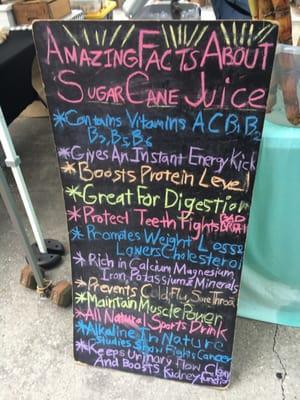 AMAZING FACTS ABOUT
SUGAR CANE JUICE
*Contains Vitamins A C B1 B2
B3, B5 B6
*Gives An Instant Energy Kick
*Boosts Protein Level
*Great For Digestion
*Protect Teeth Fights BAD BREATH
*Promotes Weight Loss &
Lowers Cholesterol
*Rich in Calcium Magnesium,
Iron, Potassium & Minerals
*Prevents Cold, Flu, Sore Throat
*Maintain Muscle Power
*All Natural Sports Drink
*Alkaline In Nature
Studies Show Fights Cancer
*Keeps Urinary Flow Clear
And Boosts Kidney